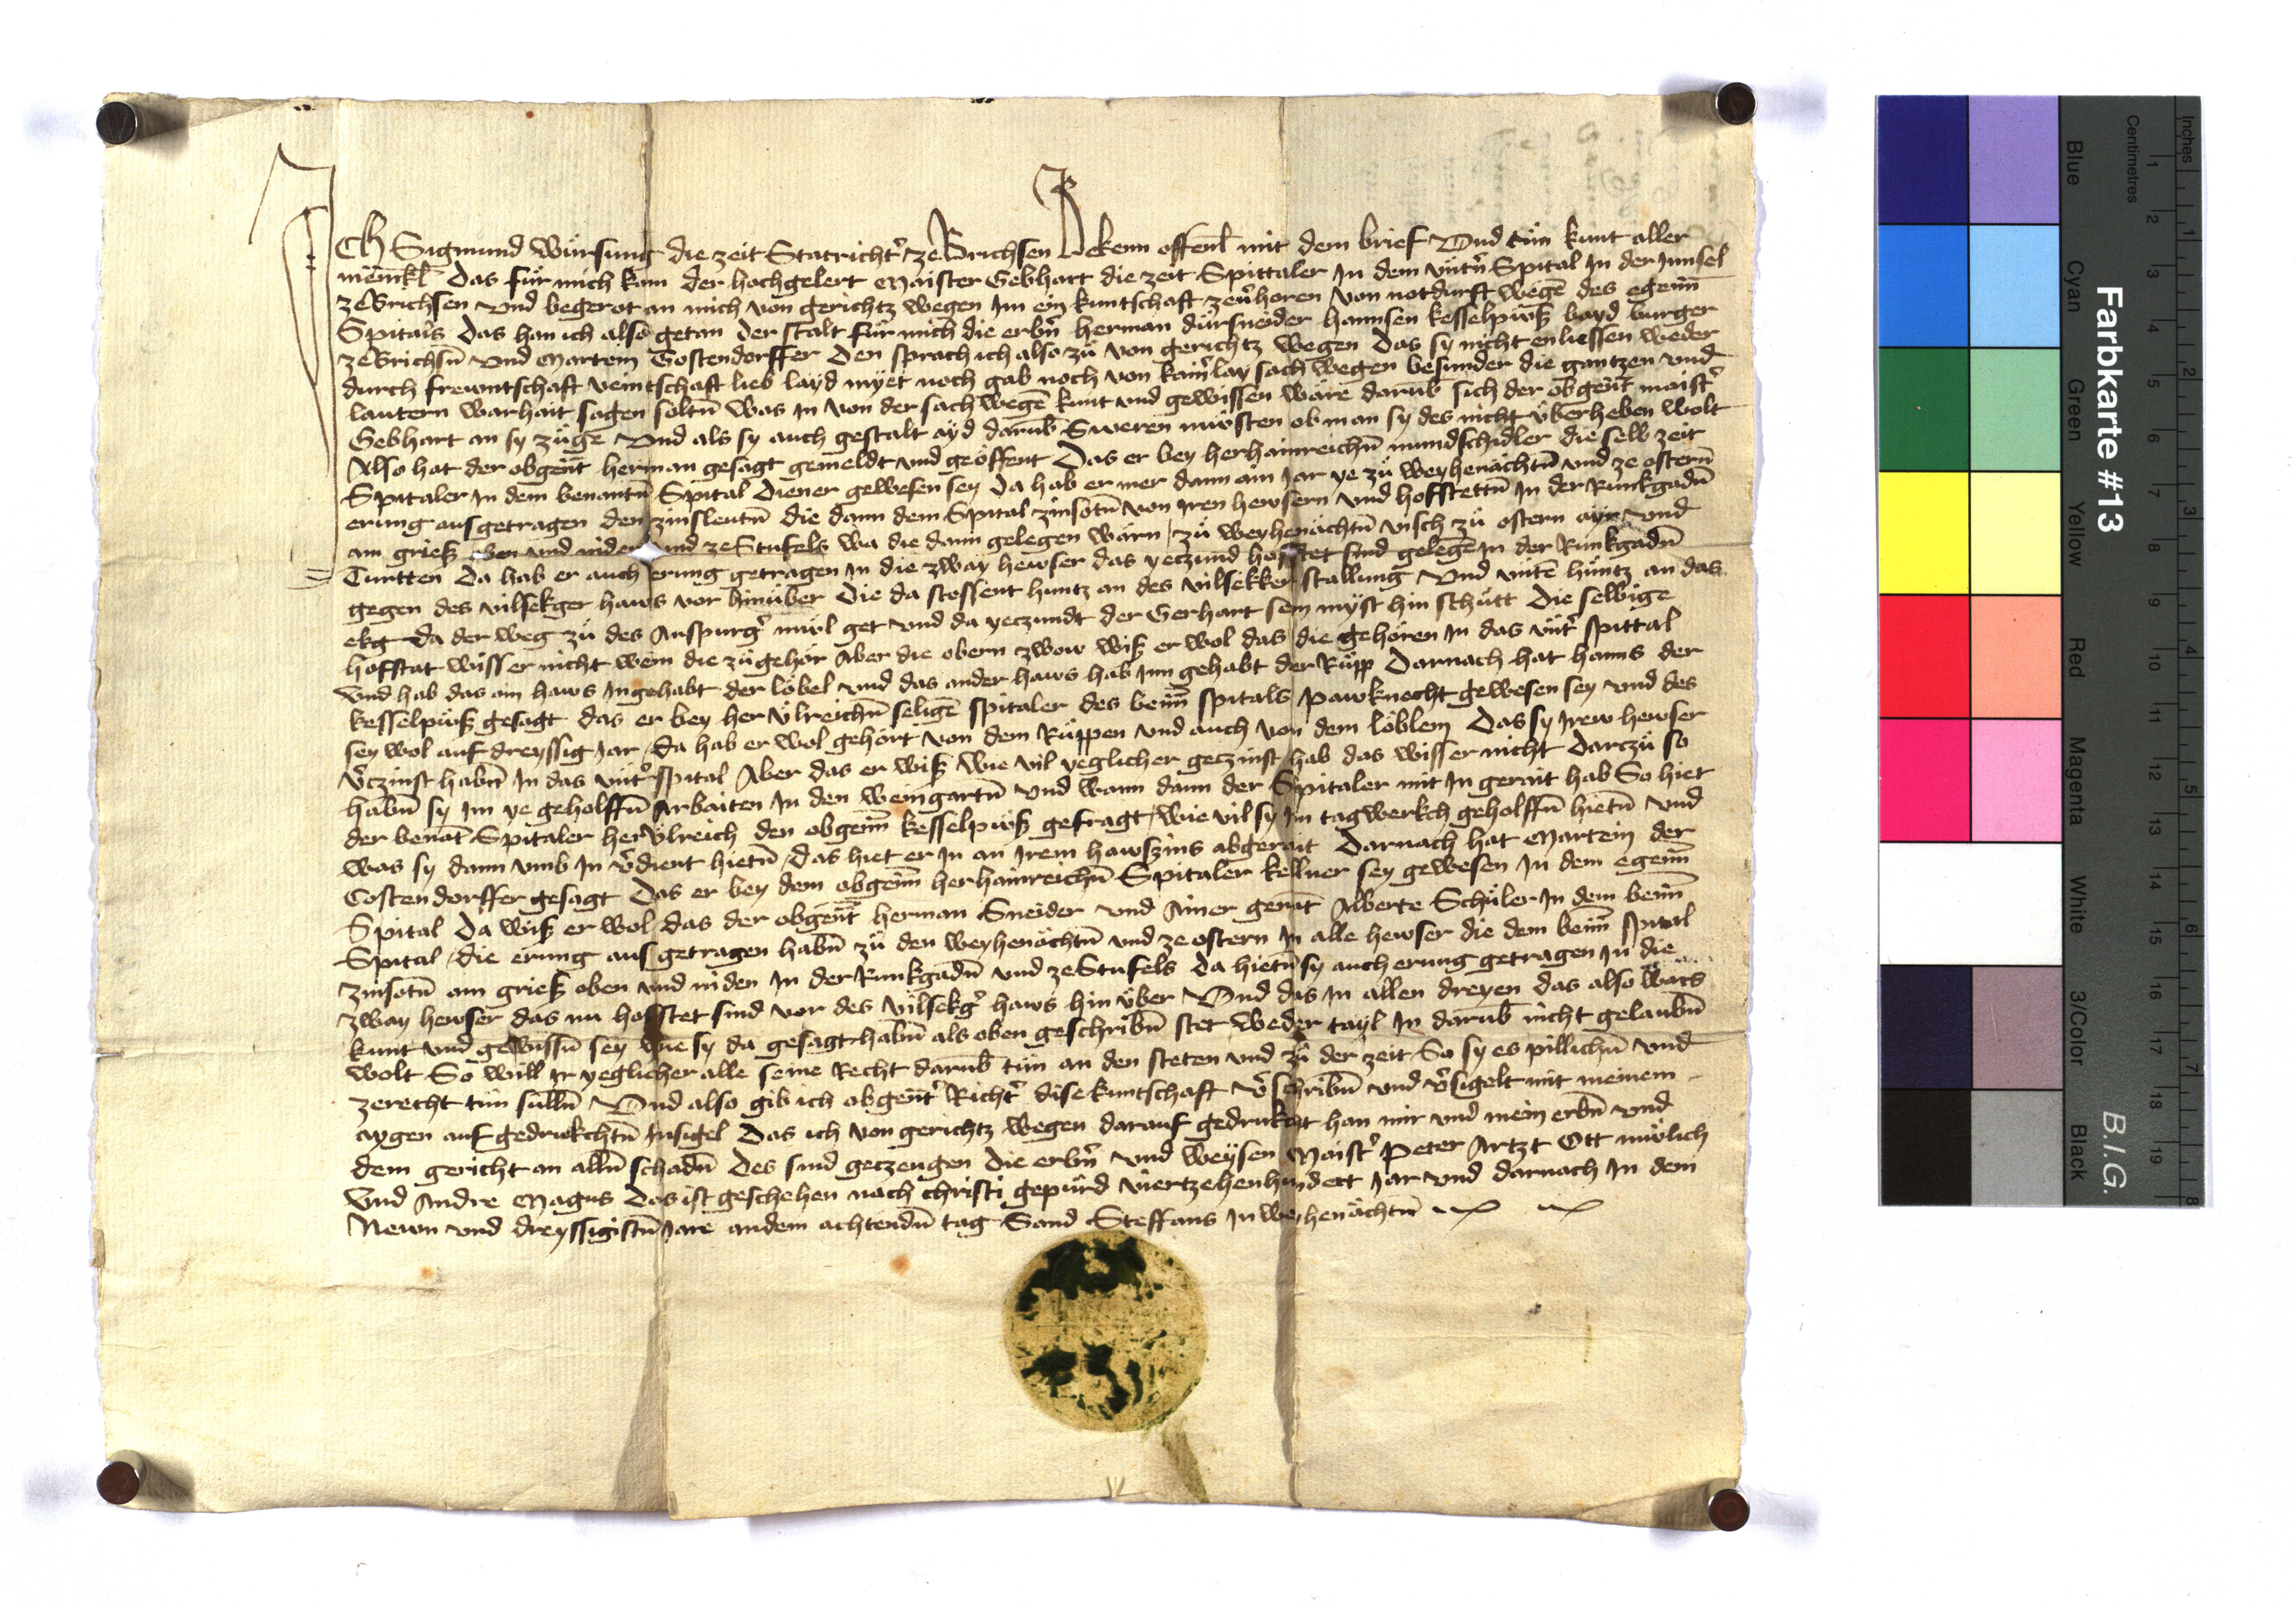 ICH Sigmund würsung die zeit Statrichtʾ ze Brichsen Bekenn offenl̄ mit dem brief Vnd tün kunt aller
mēnkl̄ Das für mich kam der hochgelert Maister Gebhart die zeit Spittaler In dem vntʾn Spital In der Innsel
ze Brichsen vnd begerot an mich von gerichtz wegen Im ein kuntschaft zeuʾhoren von notdurft wegē des egenn̄
Spitals Das han ich also getan Der stalt für mich die erbʾn herman dürsneider hannsen kesselpüß bayd burger
ze Brichsn̄ vnd Martein Costendorffer Den sprach ich also zü von gerichtz wegen Das sy nicht enliessen weder
durch frewntschaft veintschaft lieb layd myet noch gab noch von kainʾlay sach wegen besunder die gantzen vnd
lautern warhait sagen soltn̄ was In von der sach wegē kunt vnd gewissen wäre darub̄ sich der obgen̄t maistʾ
Gebhart an sy züge Vnd als sy auch gestalt ayd darub̄ Sweren müosten ob man sy des nicht überheben wolt
Also hat der obgen̄t herman gesagt gemeldt vnd geöffent Das er bey her hainreichn̄ mundschidler die selb zeit
Spitaler In dem benantn̄ Spital Diener gewesen sey Da hab er mer dann ain Jar ye zü weyhenächtn̄ vnd ze ostern̄
erung ausgetragen den zinsleutn̄ die dann dem Spital zinsotn̄ von Iren hewsern vnd hofstettn̄ In der Runkgadn̄
am grieß oben vnd niden vnd ze Stufels wa die dann gelegen wärn / zü weyhenächtn̄ visch zü ostern ayr vnd
Turtten Da hab er auch erung getragen In die zway hewser das yeczund hofstet sind gelegē In der Runkgadn̄
gegen des vilsekger haws vor hinüber Die da stossent huntz an des vilsekker stallung Vnd vntē huntz an das
ekg da der weg zü des Anspurgʾ müol get vnd da yeczundt der Gerhart sein myst hin schütt Die selbige
hofstat wiss er nicht wem die zü gehör Aber die obern zwow wiß er wol das die gehören In das vntʾ spittal
Vnd hab das ain haws Ingehabt der löbel vnd das ander haws hab Inn gehabt der Rüpp Darnach hat hanns der
kesselpüß gesagt das er bey her Vlreichn̄ seligē spitaler des benn̄ spitals pawknecht gewesen sey vnd des
sey wol auf dreyssig Jar / Da hab er wol gehört von dem Rüppen vnd auch von dem löblem Das sy Irew hewser
vʾczinst habn̄ In das vntʾ spital Aber das er wiß wie vil yeglicher geczinst hab das wisser nicht Darczü so
habn̄ sy Im ye geholffn̄ Arbaiten In den weingartn̄ vnd wann dann der Spitaler mit In gerait hab So hiet
der benāt Spitaler her Vlreich den obgenn̄ kesselpüß gefragt / wie vil sy Im tagwerkch geholffn̄ hietn̄ vnd
was sy dann vmb In vʾdient hietn̄ / Das hiet er In an Irem hawszins abgerait Darnach hat Martein der
Costendorffer gesagt Das er bey dem obgenn̄ her hainreichn̄ Spitaler kellner sey gewesen In dem egenn̄
Spital Da wiß er wol / das der obgen̄t herman Sneider vnd Ainer genāt Alberte Schüler In dem benn̄
Spital / die erung aus getragen habn̄ zü den weyhenächtn̄ vnd ze ostern In alle hewser die dem benn̄ spital
zinsotn̄ am grieß oben vnd niden In der Runkgadn̄ vnd ze Stufels Da hietn̄ sy auch erung getragen In die
zway hewser das nu hofstet sind vor des vilsekgʾ haws hin über Vnd das In allen dreyen das also wars
kunt vnd gewissn̄ sey wie sy da gesagt habn̄ als oben geschribn̄ stet weder tayl In darub̄ nicht gelaubn̄
wolt So well Ir yeglicher alle seine Recht darub̄ tün an den steten vnd zü der zeit So sy es pillichn̄ vnd
zerecht tün sülln̄ Vnd also gib ich obgen̄tʾ Richtʾ dise kuntschaft vʾschribn̄ vnd vʾsigelt mit meinem
aygen auf gedrukchtn̄ Insigel Das ich von gerichtz wegen darauf gedrukcht han mir vnd mein erbn̄ vnd
dem gericht an alln̄ schadn̄ Des sind geczeugen die erbʾn vnd weysen Maistʾ Peter Artzt Ott müolich
Vnd Andre Magus Das ist geschehen nach christi gepürd viertzehenhundert Jar vnd darnach In dem
Newn vnd dreyssigistn̄ Jare an dem achtendn̄ tag Sand Steffans In weyhenächtn̄
Farbkarte #13
B.I.G.
Inches
Centimetres
1 2 3 4 5 6 7 8 9 10 11 12 13 14 15 16 17 18 19
1 2 3 4 5 6 7 8
Blue Cyan Green Yellow Red Magenta White 3/Color Black